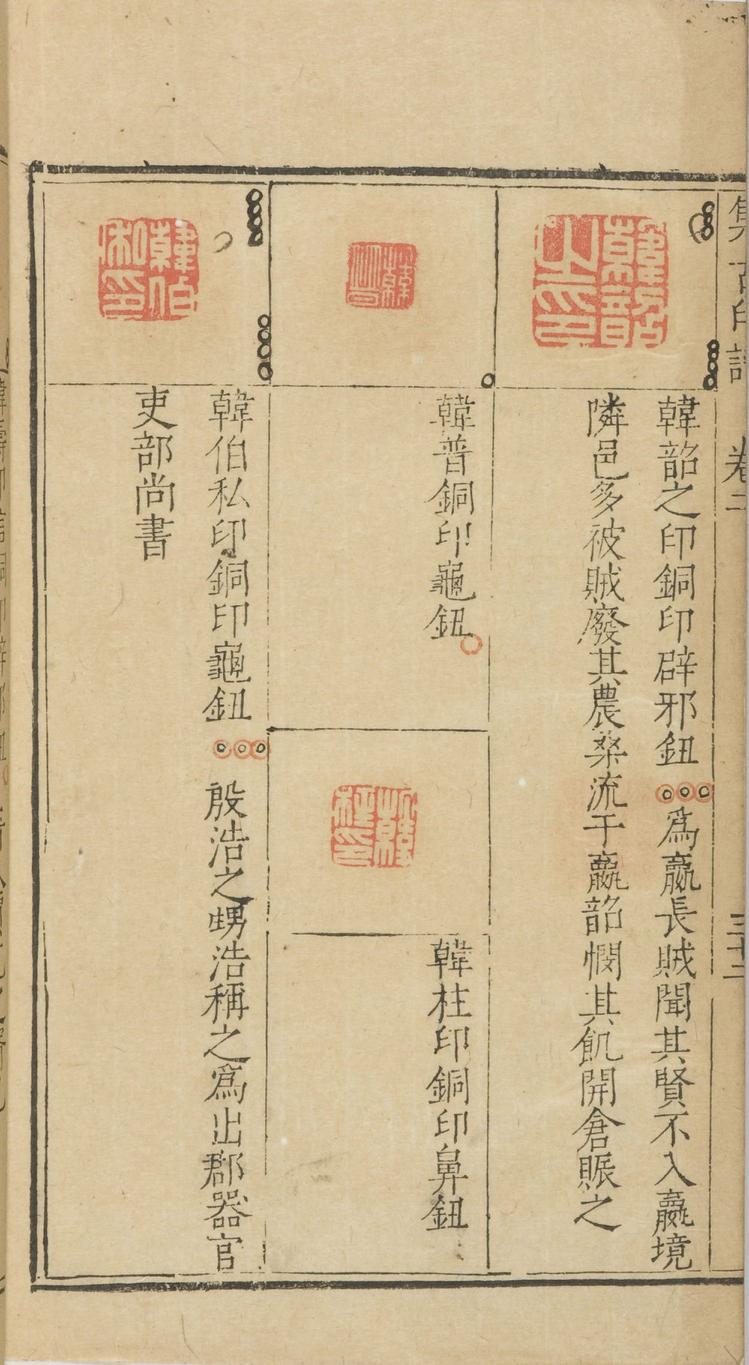 集古印譜 卷二 三十二
韓韶之印
韓韶之印銅印辟邪鈕 爲嬴長賊聞其賢不入嬴境
隣邑多被賊廢其農桑流于嬴韶憫其飢開倉賑之
韓普
韓普銅印龜鈕
韓柱印
韓柱印銅印鼻鈕
韓伯私印
韓伯私印銅印龜鈕 殷浩之甥浩稱之爲出郡器官
吏部尚書